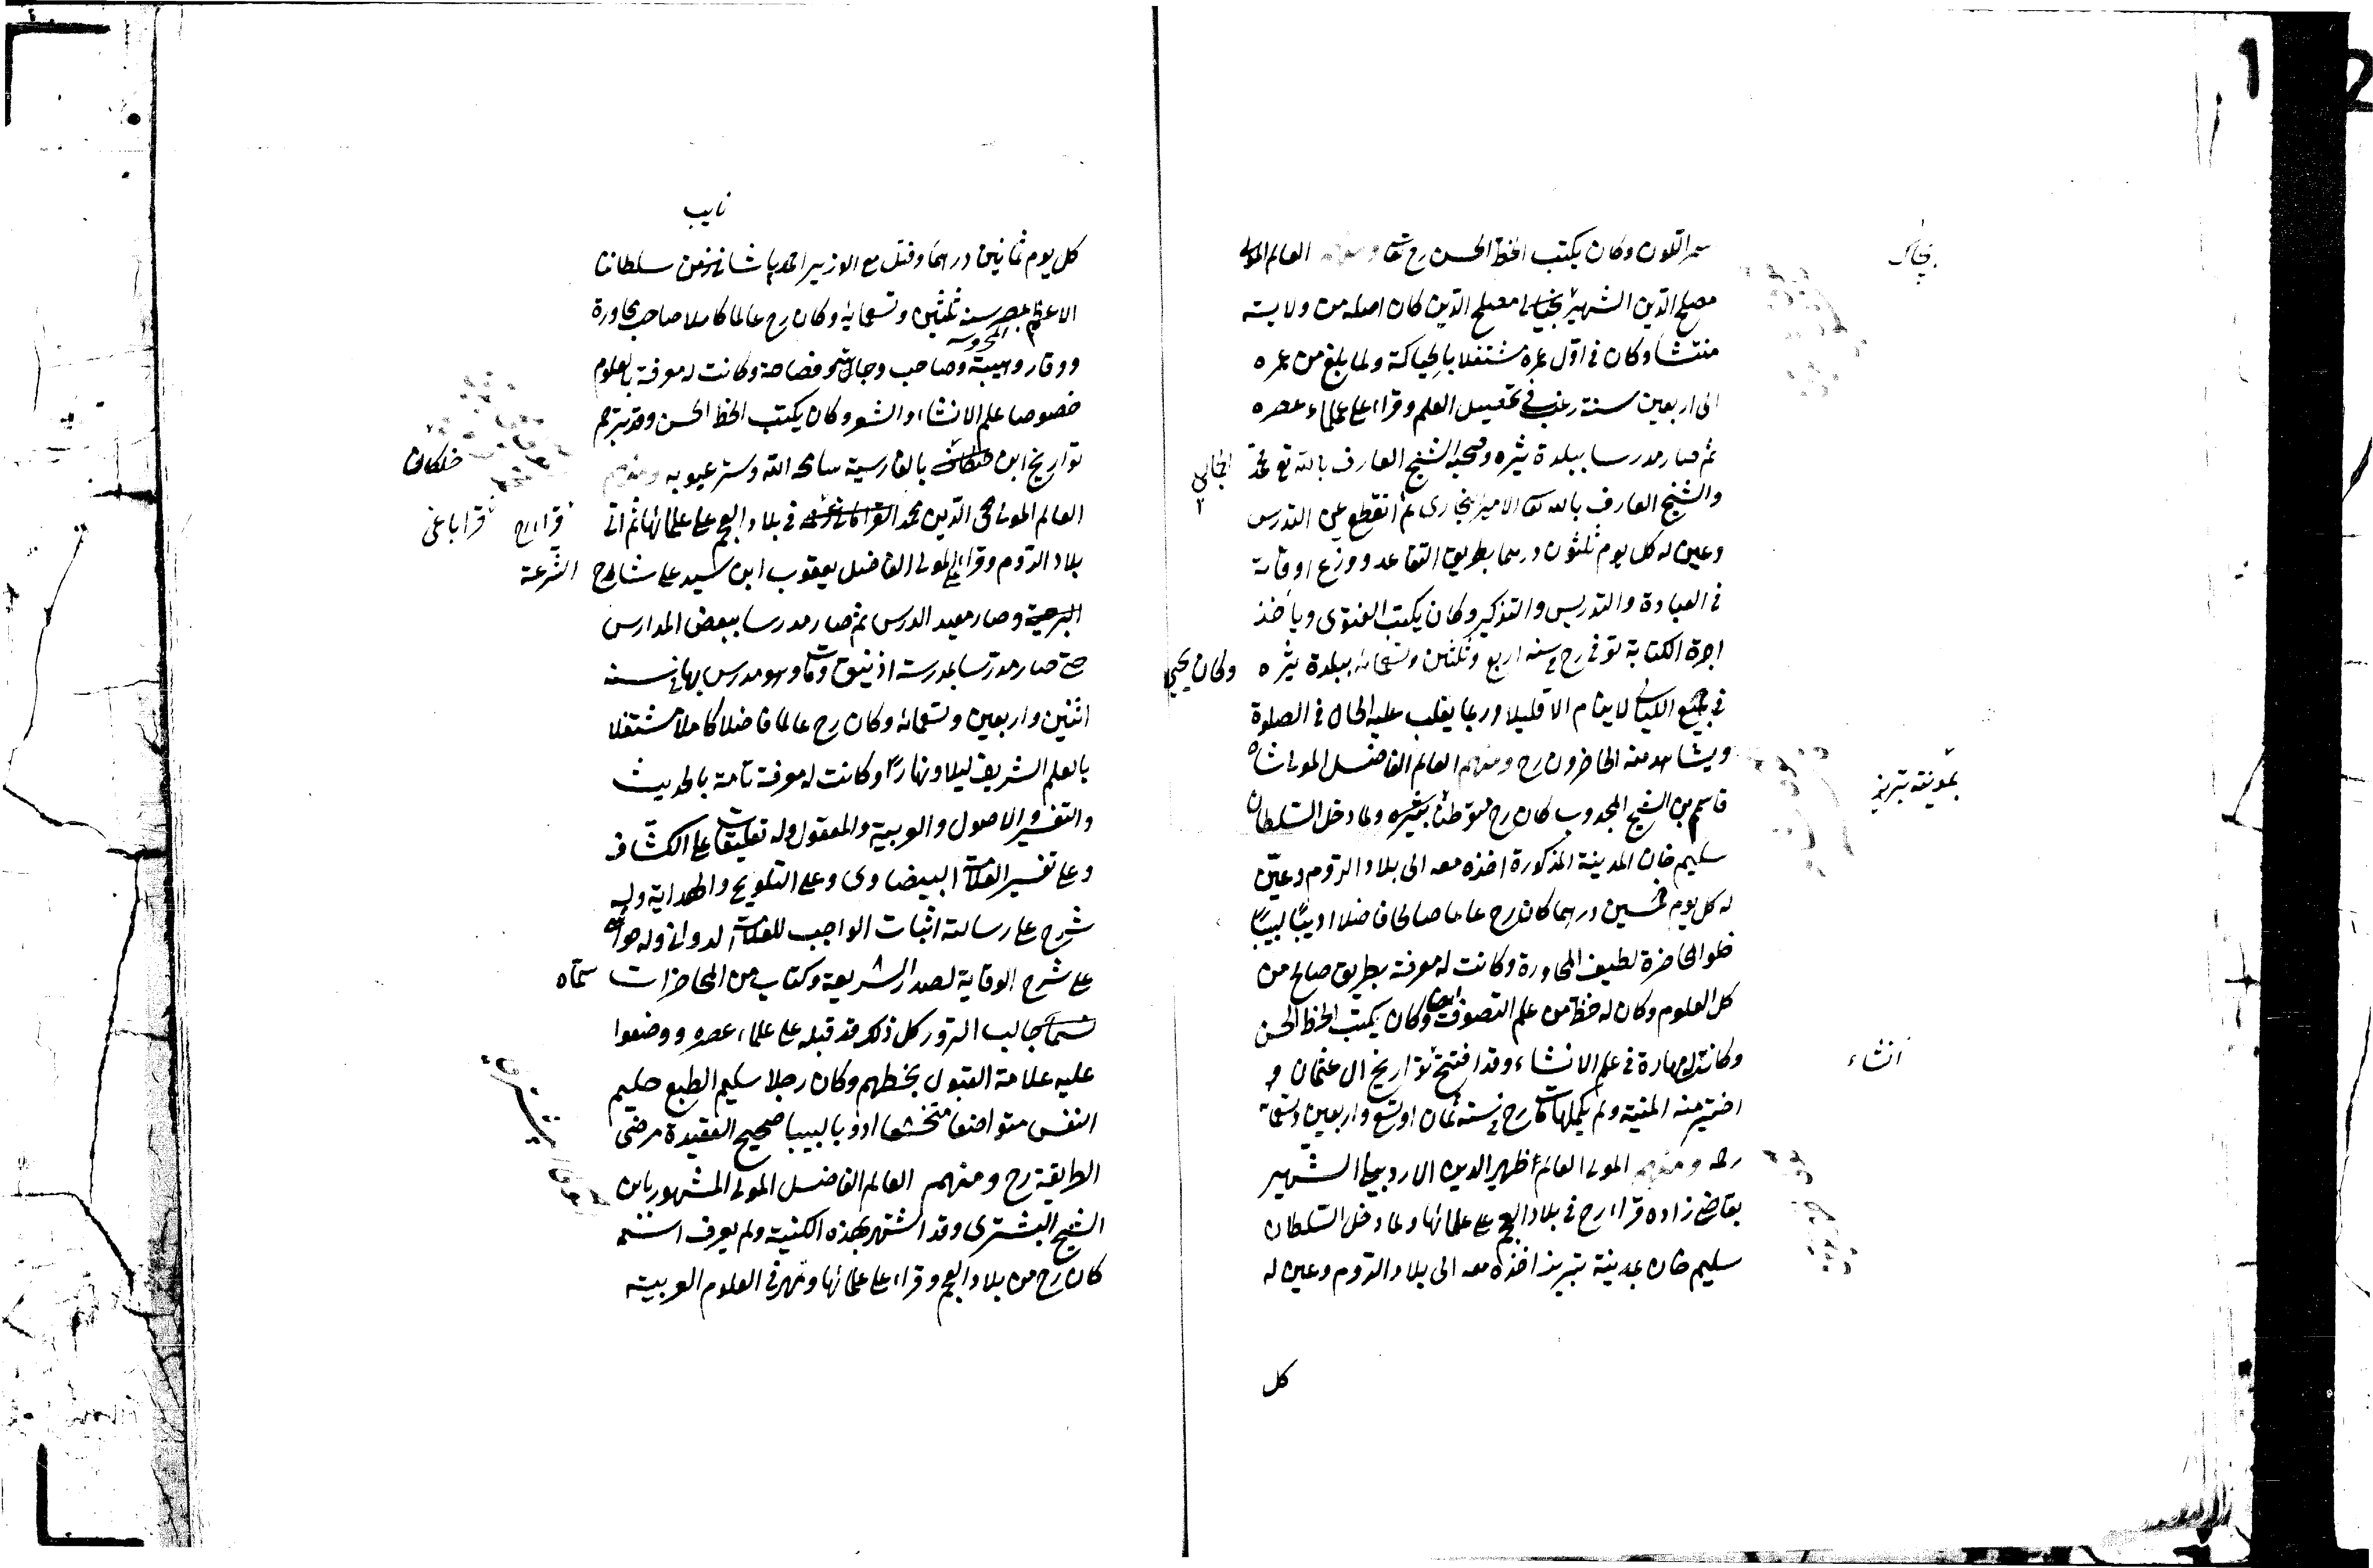 سمر اللون وكان يكتب الخط الحسن رح تعا ومنهم العالم المولى
مصلح الدين الشهير بجيالى مصلح الدين كان اصله من ولاية
منتشا وكان فى اول عمره مشتغلا بالحياكة ولما بلغ من عمره
الى اربعين سنة رغب فى تحصيل العلم وقراء على علماء عصره
ثم صار مدرسا ببلدة تيره وصحب الشيخ العارف بالله تع محمد الجمالى
والشيخ العارف بالله تعا الامير البخارى ثم انقطع عن التدرس
وعين له كل يوم ثلثون درهما بطريق التقاعد ووزع اوقاته
فى العبادة والتدريس والتذكير وكان يكتب الفتوى ويأخذ
اجرة الكتابة توفى رح فى سنه اربع وثلثين وتسعمائه ببلدة تيره وكان يحيى
فى جميع الليالى لا ينام الا قليلا وربما يغلب عليه الحال فى الصلوة
ويشاهد منه الحاضرون رح ومنهم العالم الفاضل المولى شاه
قاسم بن الشيخ المخدوب كان رح متوطنا بتبريز ولما دخل السلطان
سليم خان المدينة المذكورة اخذه معه الى بلاد الروم وعين
له كل يوم خمسين درهما كان رح عالما صالحا فاضلا اديبا لبيبا
حلو المحاضرة لطيف المحاورة وكانت له معرفة بطريق صالح من
كل العلوم وكان له حظ من علم التصوف ايضا وكان يكتب الخط الحسن
وكانت له مهارة فى علم الانشاء وقد افتتح تواريخ ال عثمان و
اخترمته المنية ولم يكملها مات رح فى سنه ثمان او تسع واربعين وتسعمائة
رحمه ومنهم المولى العالم ظهير الدين الاردبيلى الشهير
بقاضى زاده قراء رح فى بلاد العجم على علمائها ولما دخل السلطان
سليم خان مدينة تبريز اخذه معه الى بلاد الروم وعين له
كل
بمدينة تبريز
انشاء
نايب
كل يوم ثمانين درهما وقتل مع الوزير احمد پاشا فى زمن سلطاننا
الاعظم بمصر المحروسه سنه ثلثين وتسعمائة وكان رح عالما كاملا صاحب محاورة
ووقار وهيبة وصاحب وجاهة وفصاحة وكانت له معرفة بالعلوم
خصوصا علم الانشاء والشعر وكان يكتب الخط الحسن وقد ترجم
تواريخ ابن خلكان بالفارسية سامحه الله وستر عيوبه ومنهم
خلكان
العالم المولى محى الدين محمد القراباغى قراء رح فى بلاد العجم على علمائها ثم اتى
قراباغى
بلاد الروم وقراء على المولى الفاضل يعقوب ابن سيد على شارح الشرعة
وصار معيد الدرس ثم صار مدرسا ببعض المدارس
حتى صار مدرسا بمدرسة ازنيق ومات وهو مدرس بها فى سنه
اثنين واربعين وتسعمائه وكان رح عالما فاضلا كاملا مشتغلا
بالعلم الشريف ليلا ونهارا وكانت له معرفة تامة بالحديث
والتفسير والاصول والعربية والمعقول وله تعليقات على الكشاف
وعلى تفسير العلامة البيضاوى وعلى التلويح والهداية وله
شرح على رسالة اثبات الواجب للعلامة الدوانى وله حواش
على شرح الوقاية لصدر الشريعة وكتاب من المحاضرات سماه
جالب السرور كل ذلك قد قبله على علماء عصره ووضعوا
عليه علامة القبول بخطهم وكان رجلا سليم الطبع حليم
النفس متواضعا متخشعا ادوبا لبيبا صحيح العقيدة مرضى
الطريقة رح ومنهم العالم الفاضل المولى المشهور بابن
الشيخ الشبشترى وقد اشتهر بهذه الكنية ولم يعرف اسمه
كان رح من بلاد العجم وقراء على علمائها وتمهر فى العلوم العربية